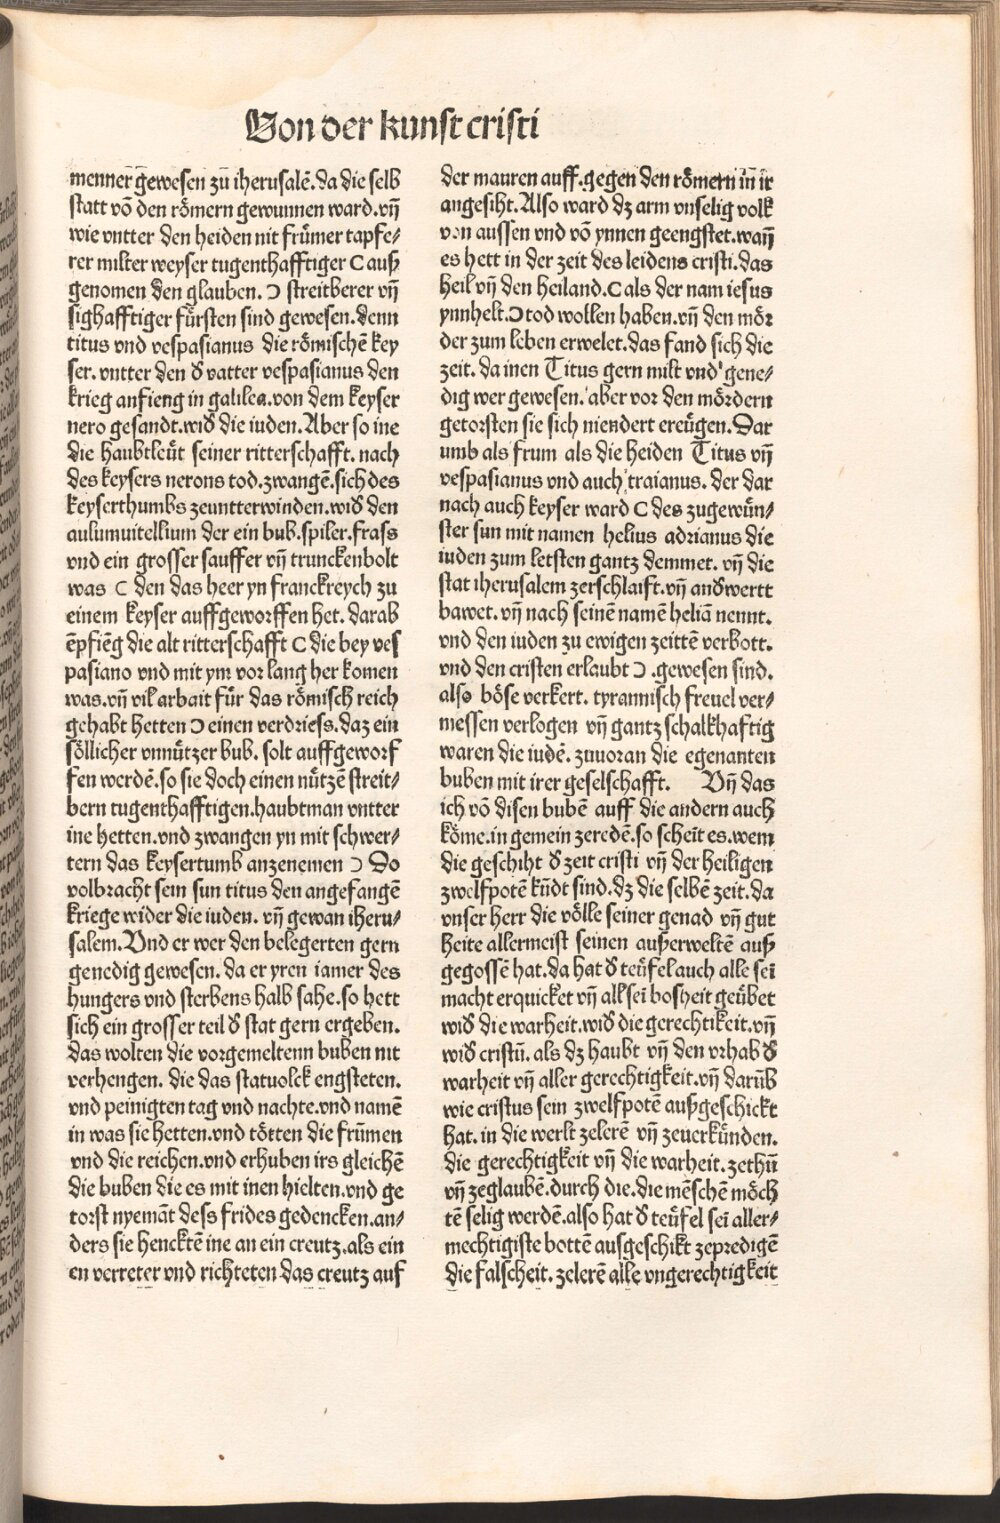 Von der kunst cristi
menner gewesen zů iherusalē. da die selb
statt vō den rőmern gewunnen ward. vñ
wie vntter den heiden nit frűmer tapfe⸗
rer milter weyser tugenthafftiger C auß
genomen den glauben. Ɔ streitberer vñ
sighafftiger fűrsten sind gewesen. denn
titus vnd vespasianus die rőmischē key
ser. vntter den ď vatter vespasianus den
krieg anfieng in galilea. von dem keyser
nero gesandt. wiď die iuden. Aber so ine
die haubtleűt seiner ritterschafft. nach
des keysers nerons tod. zwangē. sich des
keyserthumbs zeuntterwinden. wiď den
aulumuitellium der ein bub. spiler. frass
vnd ein grosser sauffer vñ trunckenbolt
was C den das heer yn franckreych zu
einem keyser auffgeworffen het. darab
ēpfiēg die alt ritterschafft C die bey ves
pasiano vnd mit ym vor lang her komen
was. vñ vil arbait fűr das rőmisch reich
gehabt hetten Ɔ einen verdriess. daz ein
sőllicher vnnűtzer bub. solt auffgeworf
fen werdē. so sie doch einen nűtzē streit⸗
bern tugenthafftigen. haubtman vntter
ine hetten. vnd zwangen yn mit schwer⸗
tern das keysertumb anzenemen Ɔ Do
volbracht sein sun titus den angefangē
kriege wider die iuden. vñ gewan iheru⸗
salem. Vnd er wer den belegerten gern
genedig gewesen. da er yren iamer des
hungers vnd sterbens halb sahe. so hett
sich ein grosser teil ď stat gern ergeben.
das wolten die vorgemeltenn buben nit
verhengen. die das statuolck engsteten.
vnd peinigten tag vnd nachte. vnd namē
in was sie hetten. vnd tőtten die frűmen
vnd die reichen. vnd erhuben irs gleichē
die buben die es mit inen hielten. vnd ge
torst nyemāt dess frides gedencken. an⸗
ders sie hencktē ine an ein creutz. als ein
en verreter vnd richteten das creutz auf
der mauren auff. gegen den rőmern in ir
angesiht. Also ward dz arm vnselig volk
von aussen vnd vō ynnen geengstet. wañ
es hett in der zeit des leidens cristi. das
heil vñ den heiland. C als der nam iesus
ynnhelt. Ɔ tod wollen haben. vñ den mőr
der zum leben erwelet. das fand sich die
zeit. da inen Titus gern milt vnd gene⸗
dig wer gewesen. aber vor den mőrdern
getorsten sie sich niendert ereűgen. Dar
umb als frum als die heiden Titus vñ
vespasianus vnd auch traianus. der dar
nach auch keyser ward C des zugewűn⸗
ster sun mit namen helius adrianus die
iuden zum letsten gantz demmet. vñ die
stat iherusalem zerschlaift. vñ anďwertt
bawet. vñ nach seinē namē heliā nennt.
vnd den iuden zu ewigen zeittē verbott.
vnd den cristen erlaubt Ɔ. gewesen sind.
also bőse verkert. tyrannisch freuel ver⸗
messen verlogen vñ gantz schalkhaftig
waren die iudē. zuuoran die egenanten
buben mit irer geselschafft. Vñ das
ich vō disen bubē auff die andern auch
kőme. in gemein zeredē. so scheīt es. wem
die geschiht ď zeit cristi vñ der heiligen
zwelfpotē kűdt sind. dz die selbē zeit. da
vnser herr die vőlle seiner genad vñ gut
heite allermeist seinen außerweltē auß
gegossē hat. da hat ď teűfel auch alle sei
macht erquicket vñ all sei bosheit geűbet
wiď die warheit. wiď die gerechtikeit. vñ
wiď cristū. als dz haubt vñ den vrhab ď
warheit vñ aller gerechtigkeit. vñ darūb
wie cristus sein zwelfpotē außgeschickt
hat. in die werlt zelerē vñ zeuerkűnden.
die gerechtigkeit vñ die warheit. zethū
vñ zeglaubē. durch die. die mēschē mőch
tē selig werdē. also hat ď teűfel sei aller⸗
mechtigiste bottē außgeschikt zepredigē
die falscheit. zelerē alle vngerechtigkeit